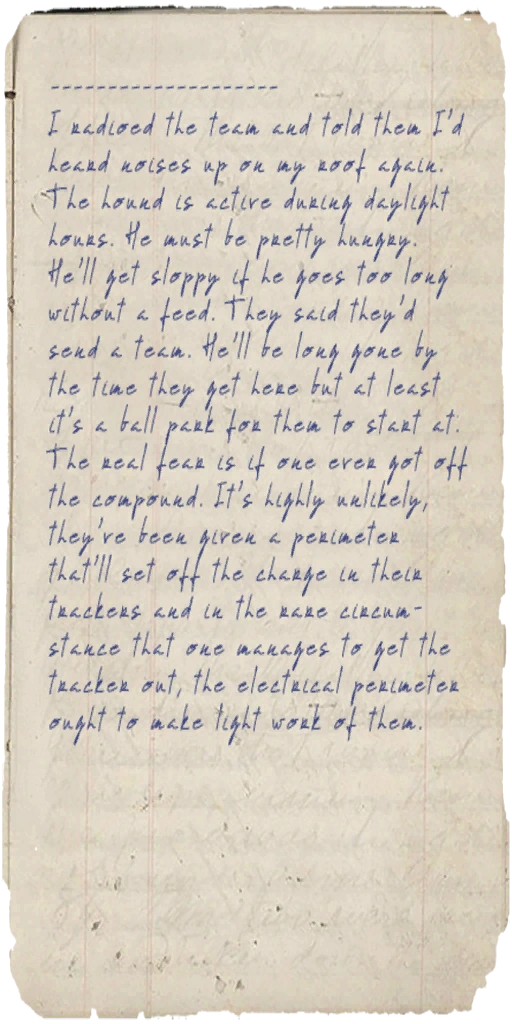 --------------------
I radioed the team and told them I'd
heard noises up on my roof again.
The hound is active during daylight
hours. He must be pretty hungry.
He'll get sloppy if he goes too long
without a feed. They said they'd
send a team. He'll be long gone by
the time they get here but at least
it's a ball park for them to start at.
The real fear is if one ever got off
the compound. It's highly unlikely,
they've been given a perimeter
that'll set off the charge in their
trackers and in the rare circum-
stance that one manages to get the
tracker out, the electrical perimeter
ought to make light work of them.